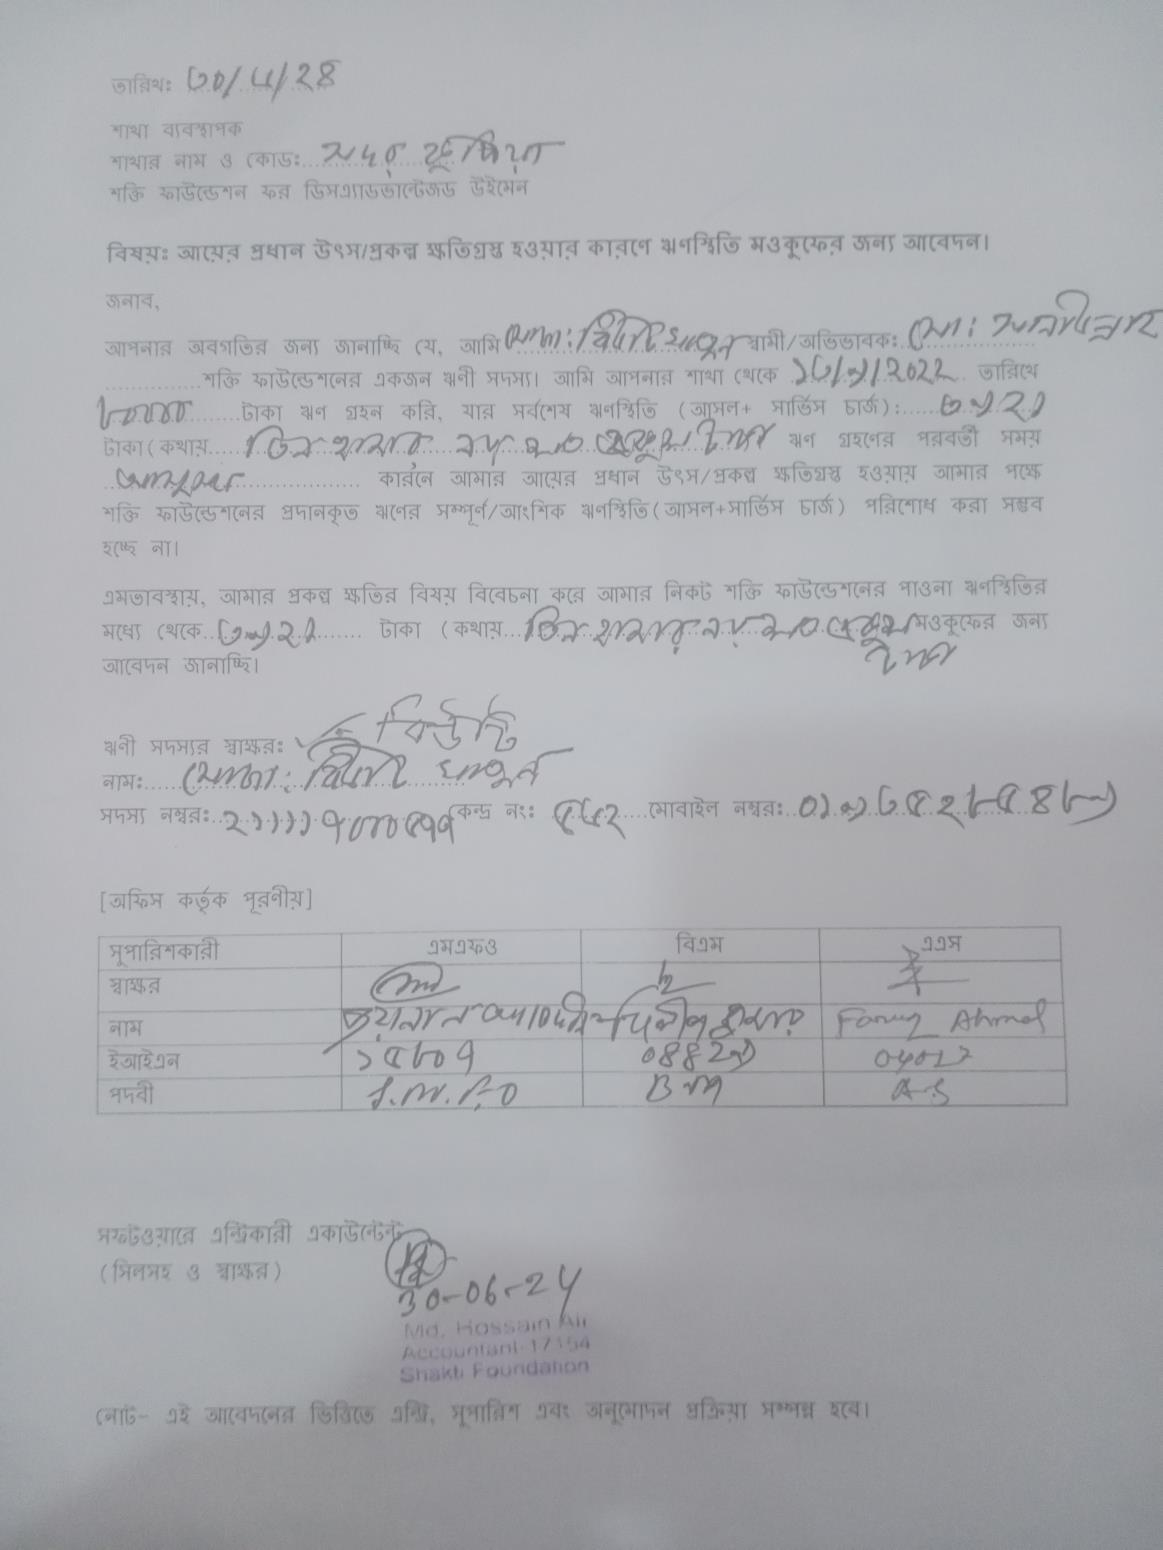 তারিখঃ ৩০/৬/২৪
শাখা ব্যবস্থাপক
শাখার নাম ও কোডঃ সদর
শক্তি ফাউন্ডেশন ফর ডিসএ্যাডভান্টেজড উইমেন
বিষয়ঃ আয়ের প্রধান উৎস/প্রকল্প ক্ষতিগ্রস্ত হওয়ার কারণে ঋণস্থিতি মওকুফের জন্য আবেদন।
জনাব,
আপনার অবগতির জন্য জানাচ্ছি যে, আমি মোছা: বিউটি খাতুন স্বামী/অভিভাবকঃ মো:
শক্তি ফাউন্ডেশনের একজন ঋণী সদস্য। আমি আপনার শাখা থেকে তারিখে
৮০০০০ টাকা ঋণ গ্রহন করি, যার সর্বশেষ ঋণস্থিতি (আসল+ সার্ভিস চার্জ): ৩৯২১
টাকা(কথায় তিন হাজার নয় শত একুশ টাকা ঋণ গ্রহণের পরবর্তী সময়
কারনে আমার আয়ের প্রধান উৎস/প্রকল্প ক্ষতিগ্রস্ত হওয়ায় আমার পক্ষে
শক্তি ফাউন্ডেশনের প্রদানকৃত ঋণের সম্পূর্ণ/আংশিক ঋণস্থিতি(আসল+সার্ভিস চার্জ) পরিশোধ করা সম্ভব
হচ্ছে না।
এমতাবস্থায়, আমার প্রকল্প ক্ষতির বিষয় বিবেচনা করে আমার নিকট শক্তি ফাউন্ডেশনের পাওনা ঋণস্থিতির
মধ্যে থেকে ৩৯২১ টাকা (কথায় তিন হাজার নয় শত একুশ টাকা মওকুফের জন্য
আবেদন জানাচ্ছি।
ঋণী সদস্যর স্বাক্ষরঃ বিউটি
নামঃ মোছা: বিউটি খাতুন
সদস্য নম্বরঃ কেন্দ্র নংঃ ৫৬২ মোবাইল নম্বরঃ ০১৯৩৫২৮৫৪৮৯
[অফিস কর্তৃক পূরণীয়]
সুপারিশকারী এমএফও বিএম এএস
স্বাক্ষর
নাম Ahmed
ইআইএন ১৫৮০৭
পদবী BM A.S
সফটওয়ারে এন্ট্রিকারী একাউন্টেন্ট
(সিলসহ ও স্বাক্ষর)
30-06-24
Md. Hossain Ali
Accountant-17154
Shakti Foundation
নোট- এই আবেদনের ভিত্তিতে এন্ট্রি, সুপারিশ এবং অনুমোদন প্রক্রিয়া সম্পন্ন হবে।